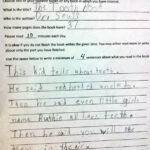 What is the title? The Tooth Book
Who is the author? Dr. Seuss
How many pages does the book have? 37
Please read 10 minutes each day.
It is okay if you do not finish the book within the given time. You may either read more or write
about only the part you have finished.
Use the space below to write a minimum of 4 sentences about what you read in the book.
This talks about teeth.
He said
Then he said even little girls
name Ruthie all have teeth.
Then he said you will